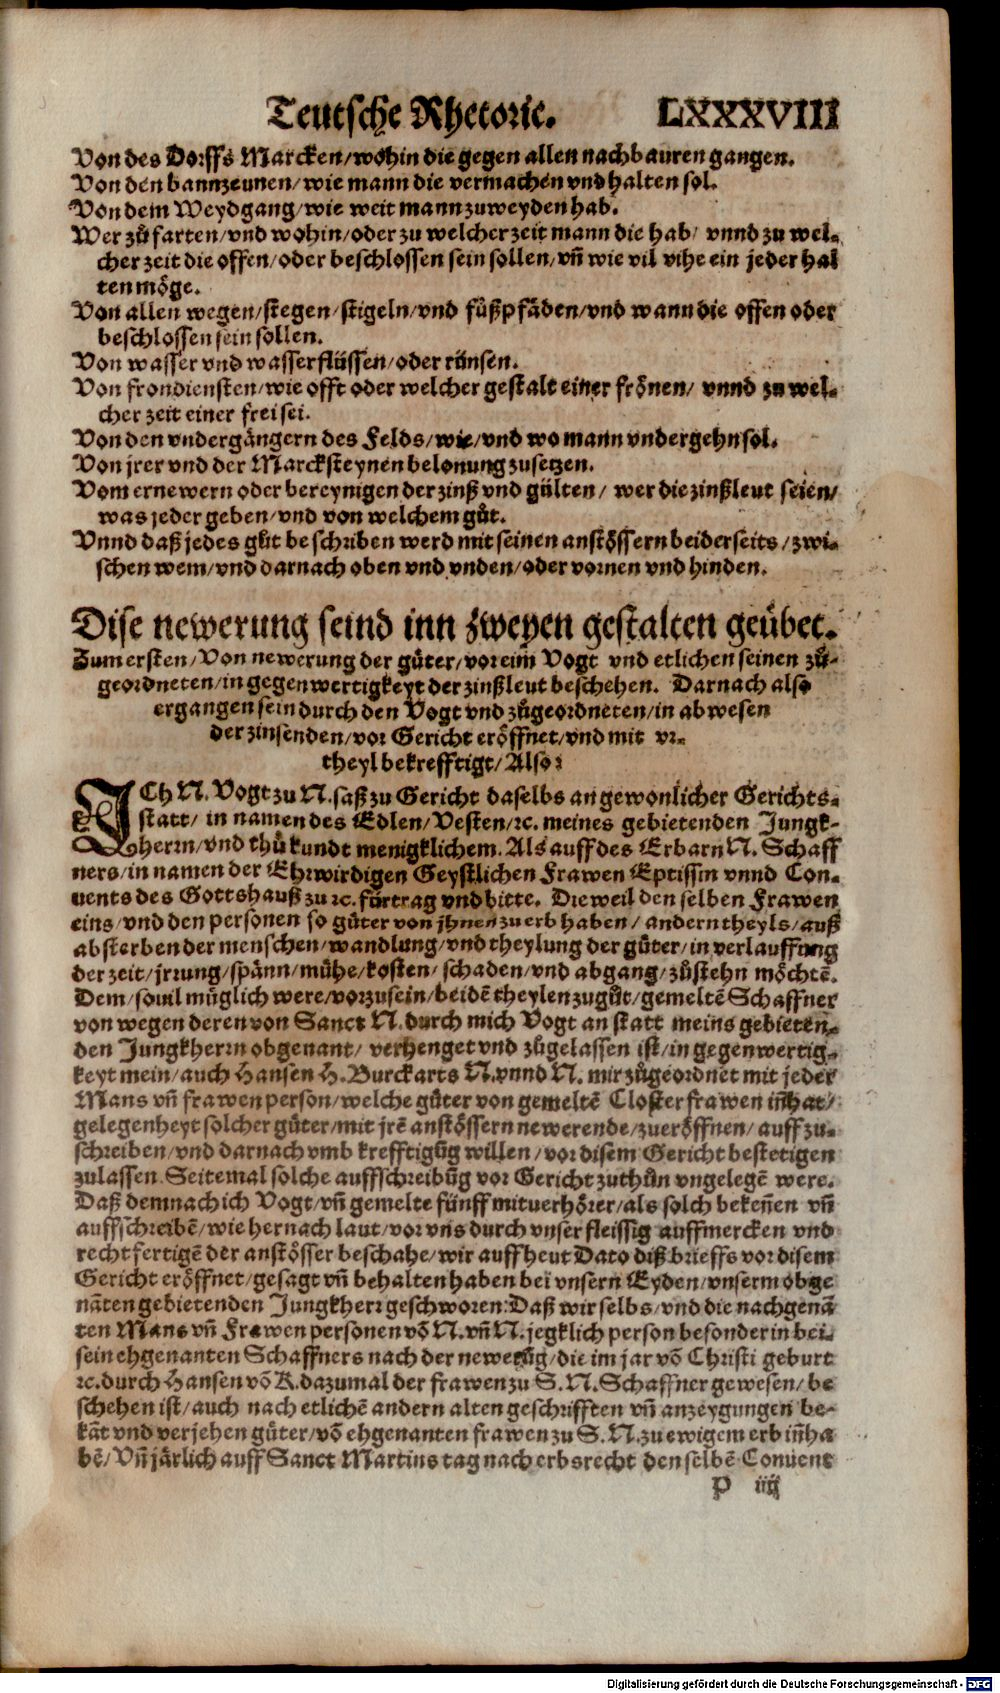 Teutsche Rhetoric. LXXXVIII
Von des Dorffs Marcken/wohin die gegen allen nachbauren gangen.
Von den bannzeunen/wie mann die vermachen vnd halten sol.
Von dem Weydgang/wie weit mann zuweyden hab.
Wer zů farten/vnd wohin/oder zu welcher zeit mann die hab/ vnnd zu wel-
cher zeit die offen/oder beschlossen sein sollen/vñ wie vil vihe ein jeder hal
ten möge.
Von allen wegen/stegen/stigeln/vnd fůßpfäden/vnd wann die offen oder
beschlossen sein sollen.
Von wasser vnd wasserflüssen/oder rünsen.
Von frondiensten/wie offt oder welcher gestalt einer frönen/ vnnd zu wel-
cher zeit einer frei sei.
Von den vndergängern des Felds/wie/vnd wo mann vndergehn sol.
Von jrer vnd der Marcksteynen belonung zusetzen.
Vom ernewern oder bereynigen der zinß vnd gülten/ wer die zinßleut seien/
was jeder geben/vnd von welchem gůt.
Vnnd daß jedes gůt beschriben werd mit seinen anstössern beiderseits/zwi-
schen wem/vnd darnach oben vnd vnden/oder vornen vnd hinden.
Dise newerung seind inn zweyen gestalten geübet.
Zum ersten/Von newerung der güter/vor eim Vogt vnd etlichen seinen zů-
geordneten/in gegenwertigkeyt der zinßleut beschehen. Darnach also
ergangen sein durch den Vogt vnd zůgeordneten/in abwesen
der zinsenden/vor Gericht eröffnet/vnd mit vr-
theyl bekrefftigt/Also:
ICh N. Vogt zu N. saß zu Gericht daselbs an gewonlicher Gerichts-
statt/ in namen des Edlen/Vesten/ꝛc. meines gebietenden Jungk-
herrn/vnd thů kundt menigklichem. Als auff des Erbarn N. Schaff
ners/in namen der Ehrwirdigen Geystlichen Frawen Eptissin vnnd Con-
uents des Gottshauß zu ꝛc. fürtrag vnd bitte. Dieweil den selben Frawen
eins/vnd den personen so güter von jhnen zu erb haben/ andern theyls/auß
absterben der menschen/wandlung/vnd theylung der güter/in verlauffung
der zeit/jrrung/spänn/mühe/kosten/ schaden/vnd abgang/zůstehn möchtē.
Dem/souil müglich were/vorzusein/beidē theylen zugůt/gemeltē Schaffner
von wegen deren von Sanct N. durch mich Vogt an statt meins gebieten-
den Jungkherrn obgenant/ verhenget vnd zůgelassen ist/in gegenwertig-
keyt mein/auch Hansen H. Burckarts N. vnnd N. mir zůgeordnet mit jeder
Mans vñ frawen person/welche güter von gemeltē Closterfrawen iñhat/
gelegenheyt solcher güter/mit jrē anstössern newerende/zueröffnen/ auff zu-
schreiben/vnd darnach vmb krefftigūg willen/vor disem Gericht bestetigen
zulassen. Seitemal solche auffschreibūg vor Gericht zuthůn vngelegē were.
Daß demnach ich Vogt/vñ gemelte fünff mituerhörer/als solch bekeñen vñ
auffschreibē/wie hernach laut/vor vns durch vnser fleissig auffmercken vnd
rechtfertigē der anstösser beschahe/wir auff heut Dato diß brieffs vor disem
Gericht eröffnet/gesagt vñ behalten haben bei vnsern Eyden/vnserm obge
nāten gebietenden Jungkherr geschworen: Daß wir selbs/vnd die nachgenā
ten Mans vñ Frawen personen vō N. vñ N. jegklich person besonder in bei-
sein ehgenanten Schaffners nach der newerūg/die im jar vō Christi geburt
ꝛc. durch Hansen vō K. dazumal der frawen zu S. N. Schaffner gewesen/be
schehen ist/auch nach etlichē andern alten geschrifften vñ anzeygungen be-
kāt vnd verjehen güter/vō ehgenanten frawen zu S. N. zu ewigem erb iñha
bē/Vñ järlich auff Sanct Martins tag nach erbsrecht den selbē Conuent
P iiij
Digitalisierung gefördert durch die Deutsche Forschungsgemeinschaft - DFG